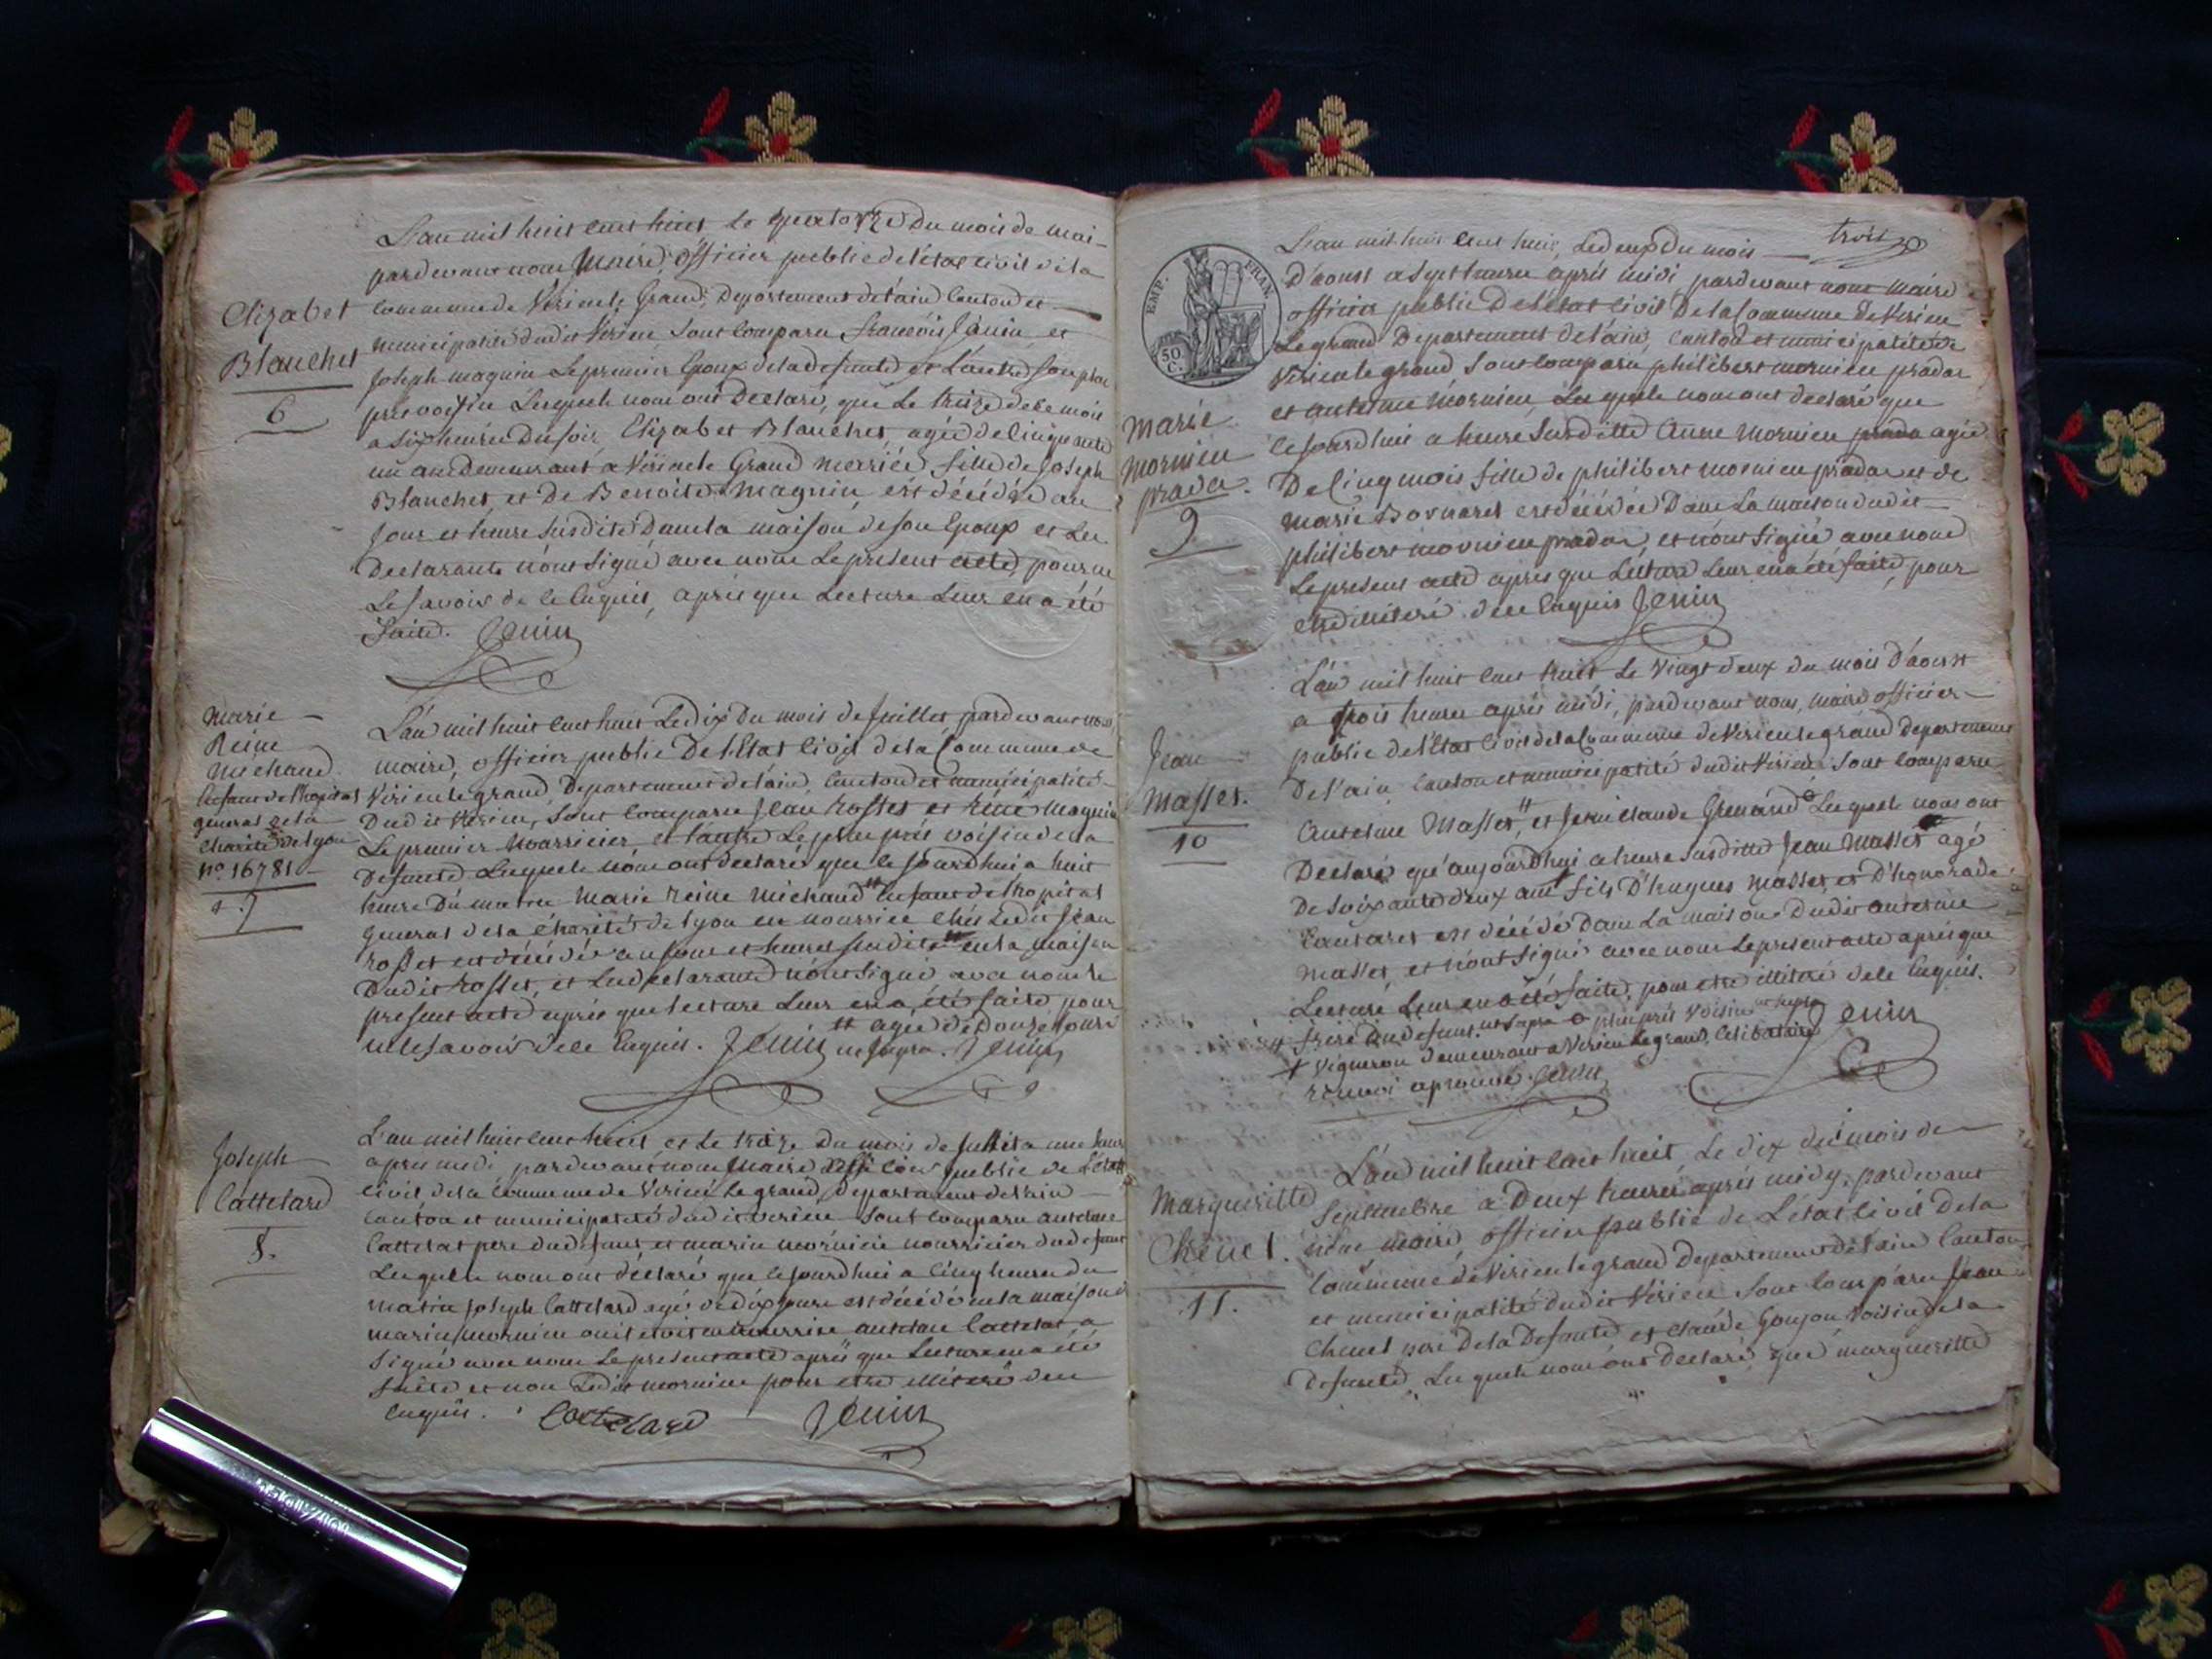 L'an mil huit cent huit le quatorze du mois de mai
pardevant nous Maire, officier public de l'état civil de la
commune de Virieu le Grand, Departement de l'ain Canton et
municipalité dudit Virieu sont comparu francois Janin et
Joseph magnin Le premier Epoux de la defunte et L'autre son plus
prés voisin Lesquels nous ont Declaré, que Le treize de ce mois
a six heures Du soir Elizabet Blanchet agée de cinquante
un an demeurant a Virieu le Grand mariée fille de Joseph
Blanchet et De Benoite Magnin, est décédée au
Jour et heure susdite Dans la maison de son Epoux et Les
Declarants n'ont signé avec nous Le present acte, pour ne
Le savoir de ce Enquis, aprés que Lecture Leur en a été
faite. Jenin
Elizabet
Blanchet
6
L'an mil huit cent huit Le dix Du mois de Juillet pardevant nous
maire, officier public De l'Etat Civil de la Commune de
Virieu le grand, Departement de l'ain, Canton et municipalité
Dudit Virieu, sont comparu Jean Rosset et Réné magnin
Le premier Nourricier et l'autre Le plus prés voisin de la
defunte Lesquels nous ont declaré que ce Jourd'hui a huit
heure Du matin Marie Reine Michaud # Enfant de l'hopital
General de la Charité de Lyon en nourrice chés Ledit Jean
rosset est décédée au Jour et heure susdite en la maison
Dudit Rosset, et Les declarants n'ont signé avec nous le
present acte aprés que lecture Leur en a été faite pour
ne le savoir de ce Enquis. Jenin # agée de Douze Jours
ut supra. Jenin
Marie
Reine
Michaud
Enfant de l'hopital
general de la
Charité de Lyon
no. 16781
7
L'an mil huit cent huit, et le treize Du mois de Juillet a une heure
aprés midi pardevant nous Maire officier public de L'état
civil de la commune de Virieu Le grand, Departement de l'ain
canton et municipalité dudit virieu sont comparu antelme
Cattelat pere du defunt et marin mornieu nourricier du defunt
Lesquels nous ont déclaré que ce Jourd'hui a cinq heures du
matin Joseph Cattelard agé de dix Jours est décédé en la maison
marin mornieu ou il etoit en nourrice antelme Cattelat a
signé avec nous Le present acte aprés que Lecture en a été
faite et non Ledit mornieu pour etre illiteré de ce
enquis. Cattelard Jenin
Joseph
Cattelard
8.
trois
L'an mil huit cent huit, Le deux Du mois
D'aoust a sept heures aprés midi pardevant nous maire
officier public De l'état civil De la Commune de Virieu
Le grand Departement de l'ain, Canton et municipalité de
Virieu le grand sont comparu philibert mornieu pradar
et antelme Mornieu, Lesquels nous ont declaré que
ce Jourd'hui a heure susditte Anne Mornieu prada agée
De cinq mois fille de philibert mornieu pradar et de
Marie Bornaret est décédée Dans La maison dudit
philibert mornieu pradar, et n'ont signé avec nous
Le present acte aprés que Lecture Leur en a été faite, pour
etre illiteré de ce Enquis Jenin
EMP. FRAN.
50
C.
Marie
Mornieu
prada.
9
L'an mil huit cent huit Le Vingt deux du mois d'aoust
a trois heures aprés midi, pardevant nous, maire officier
public de l'Etat Civil de la Commune de Virieu le grand Departement
De l'ain Canton et municipalité dudit Virieu sont comparu
Antelme Masset #, et Jean claude Grenard ⊖ Lesquels nous ont
Declaré qu'aujourd'hui a heure susditte Jean Masset agé
De soixante deux ans fils D'hugues Masset et D'honorade
Cantaret est décédé Dans La maison Dudit antelme
Masset, et n'ont signé avec nous Le present acte aprés que
Lecture Leur en a été faite, pour etre illiteré de ce Enquis.
# frere Du defunt. ut supra ⊖ plus prés Voisin ut supra Jenin
+ Vigneron demeurant a Virieu Le grand, Celibataire
renvoi aprouvé. Jenin
Jean
Masset.
10
L'an mil huit cent huit Le dix du mois de
Septembre a Deux heures aprés midy, pardevant
nous maire officier public de L'état civil de la
Commune de Virieu le grand Departement de l'ain Canton
et municipalité dudit Virieu sont comparu Jean
Chenet pere De la Defunte et claude Goujon voisin de la
Defunte, Lesquels nous ont Declaré, que marguerite
Margueritte
Chenet.
11.